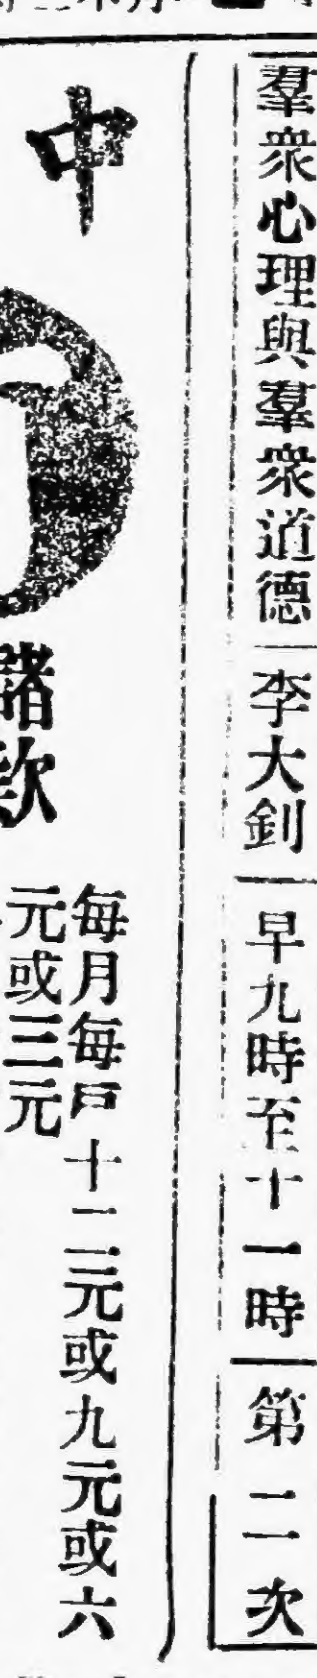 羣衆心理與羣衆道德
李大釗
早九時至十一時
第二次
中
諸欵
每月每戶十二元或九元或六
元或三元